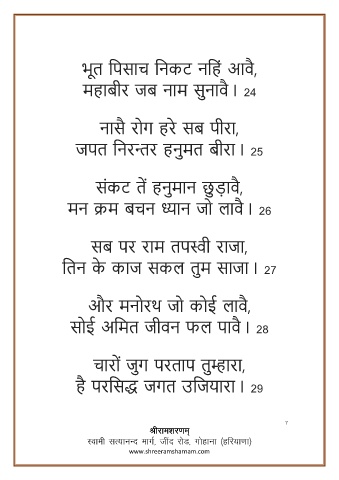 भूत पिसाच निकट नहिं आवै,
महाबीर जब नाम सुनावै। 24
नासै रोग हरे सब पीरा,
जपत निरन्तर हनुमत बीरा। 25
संकट तें हनुमान छुड़ावै,
मन क्रम बचन ध्यान जो लावै। 26
सब पर राम तपस्वी राजा,
तिन के काज सकल तुम साजा। 27
और मनोरथ जो कोई लावै,
सोई अमित जीवन फल पावै। 28
चारों जुग परताप तुम्हारा,
है परसिद्ध जगत उजियारा। 29
7
श्रीरामशरणम्
स्वामी सत्यानन्द मार्ग, जींद रोड, गोहाना (हरियाणा)
www.shreeramsharnam.com